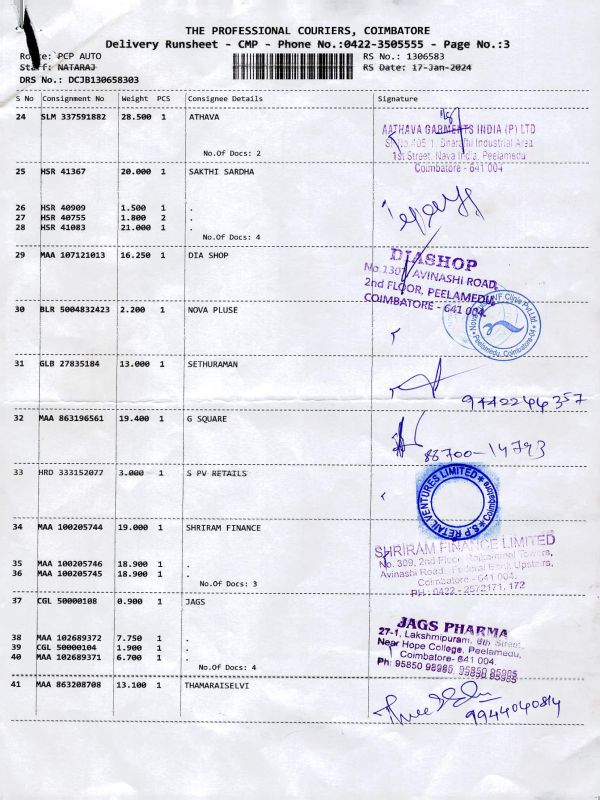 THE PROFESSIONAL COURIERS, COIMBATORE
Delivery Runsheet - CMP - Phone No.:0422-3505555 - Page No.:3
Route: PCP AUTO
RS No.: 1306583
Staff: NATARAJ
RS Date: 17-Jan-2024
DRS No.: DCJB130658303
S No Consignment No Weight PCS Consignee Details Signature
24 SLM 337591882 28.500 1 ATHAVA
No.Of Docs: 2
AATHAVA GARMENTS INDIA (P) LTD
Industrial Area
1st Street, Nava India, Peelamedu
Coimbatore - 641 004
25 HSR 41367 20.000 1 SAKTHI SARDHA
26 HSR 40909 1.500 1 .
27 HSR 40755 1.800 2 .
28 HSR 41083 21.000 1 .
No.Of Docs: 4
29 MAA 107121013 16.250 1 DIA SHOP
DIASHOP
No.1307, AVINASHI ROAD,
2nd FLOOR, PEELAMEDU,
COIMBATORE - 641 004.
30 BLR 5004832423 2.200 1 NOVA PLUSE
Clinic Pvt.Ltd.
Peelamedu, Coimbatore-04
31 GLB 27835184 13.000 1 SETHURAMAN
9442244357
32 MAA 863196561 19.400 1 G SQUARE
88700-14793
33 HRD 333152077 3.000 1 S PV RETAILS
S.P RETAIL VENTURES LIMITED
Coimbatore
34 MAA 100205744 19.000 1 SHRIRAM FINANCE
35 MAA 100205746 18.900 1 .
36 MAA 100205745 18.900 1 .
No.Of Docs: 3
SHRIRAM FINANCE LIMITED
No. 309, 2nd Floor, Towers,
Avinashi Road, Federal Bank Upstairs,
Coimbatore - 641 004.
PH : 0422 - 2572171, 172
37 CGL 50000108 0.900 1 JAGS
38 MAA 102689372 7.750 1 .
39 CGL 50000104 1.900 1 .
40 MAA 102689371 6.700 1 .
No.Of Docs: 4
JAGS PHARMA
27-1, Lakshmipuram, 6th Street,
Near Hope College, Peelamedu,
Coimbatore- 641 004.
Ph: 95850 98985, 95850 95985
41 MAA 863208708 13.100 1 THAMARAISELVI
9944040814